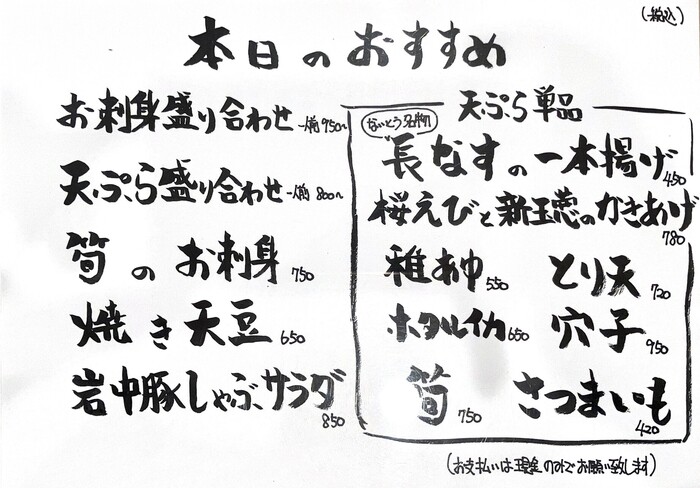 (税込)
本日のおすすめ
お刺身盛り合わせ 一人前 950~
天ぷら盛り合わせ 一人前 800~
筍のお刺身 750
焼き天豆 650
岩中豚しゃぶサラダ 850
天ぷら単品
ないとう名物
長なすの一本揚げ 450
桜えびと新玉葱のかきあげ 780
稚あゆ 550 とり天 720
ホタルイカ 650 穴子 950
筍 750 さつまいも 420
(お支払いは現金のみでお願い致します)